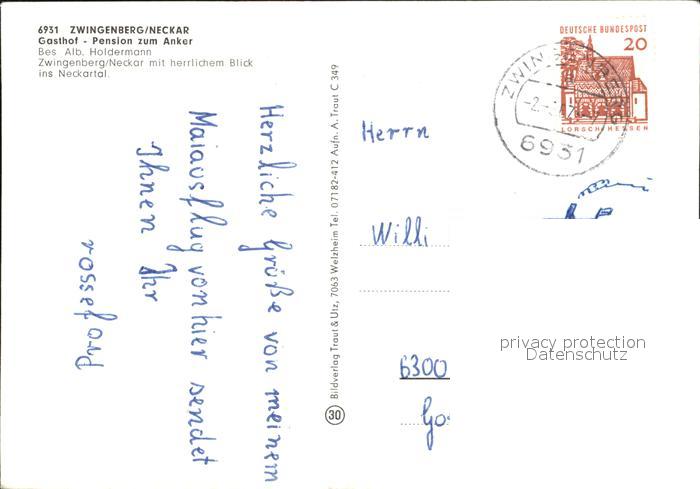 6931 ZWINGENBERG/NECKAR
Gasthof - Pension zum Anker
Bes Alb. Holdermann
Zwingenberg/Neckar mit herrlichem Blick
ins Neckartal.
Herzliche Grüße von meinem
Maiausflug von hier sendet
Ihnen Ihr
Bildverlag Traut & Utz, 7063 Welzheim Tel. 07182-412 Aufn. A. Traut C 349
30
DEUTSCHE BUNDESPOST
20
LORSCH HESSEN
6931
Herrn
Willi
6300
privacy protection
Datenschutz